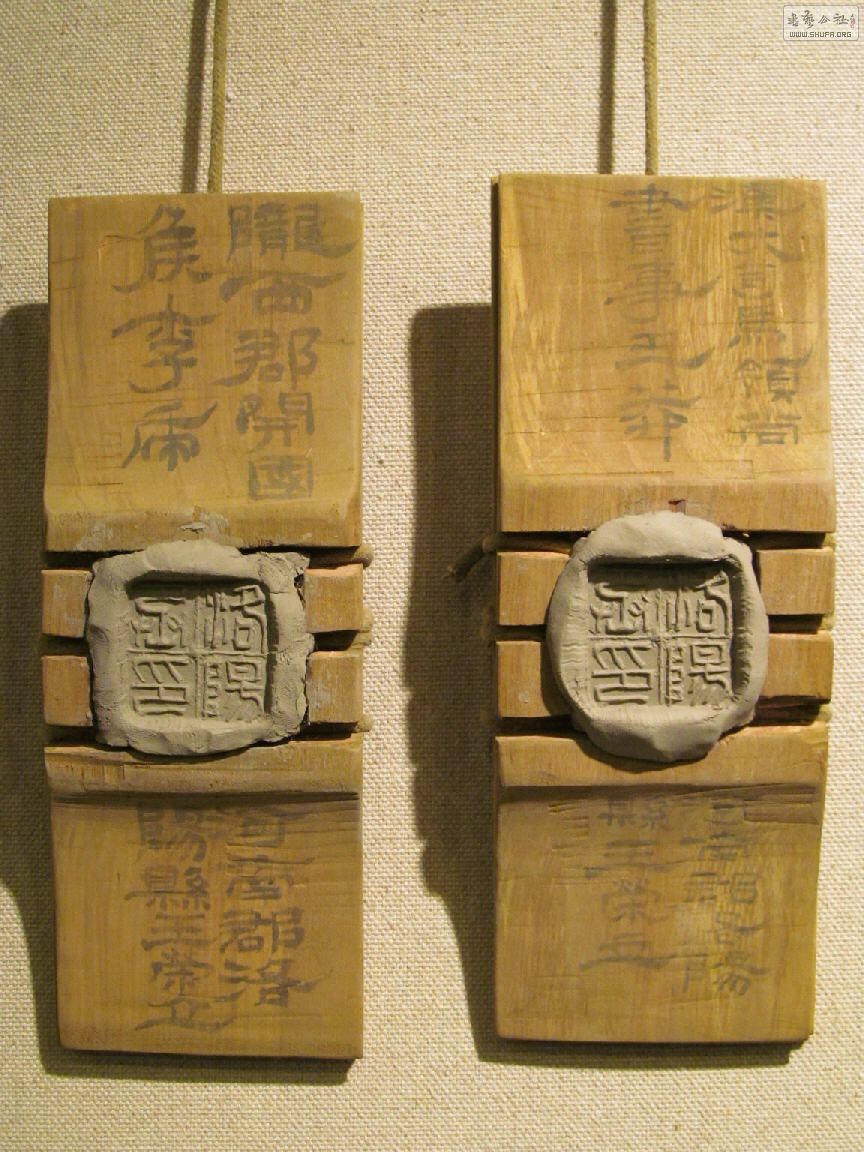 隴西郡開國
侯李
洛陽
丞印
河南郡洛
陽縣王榮
漢大司馬領尚
書事王莽
洛陽
丞印
河南郡洛陽
縣王榮
WWW.SHUFA.ORG